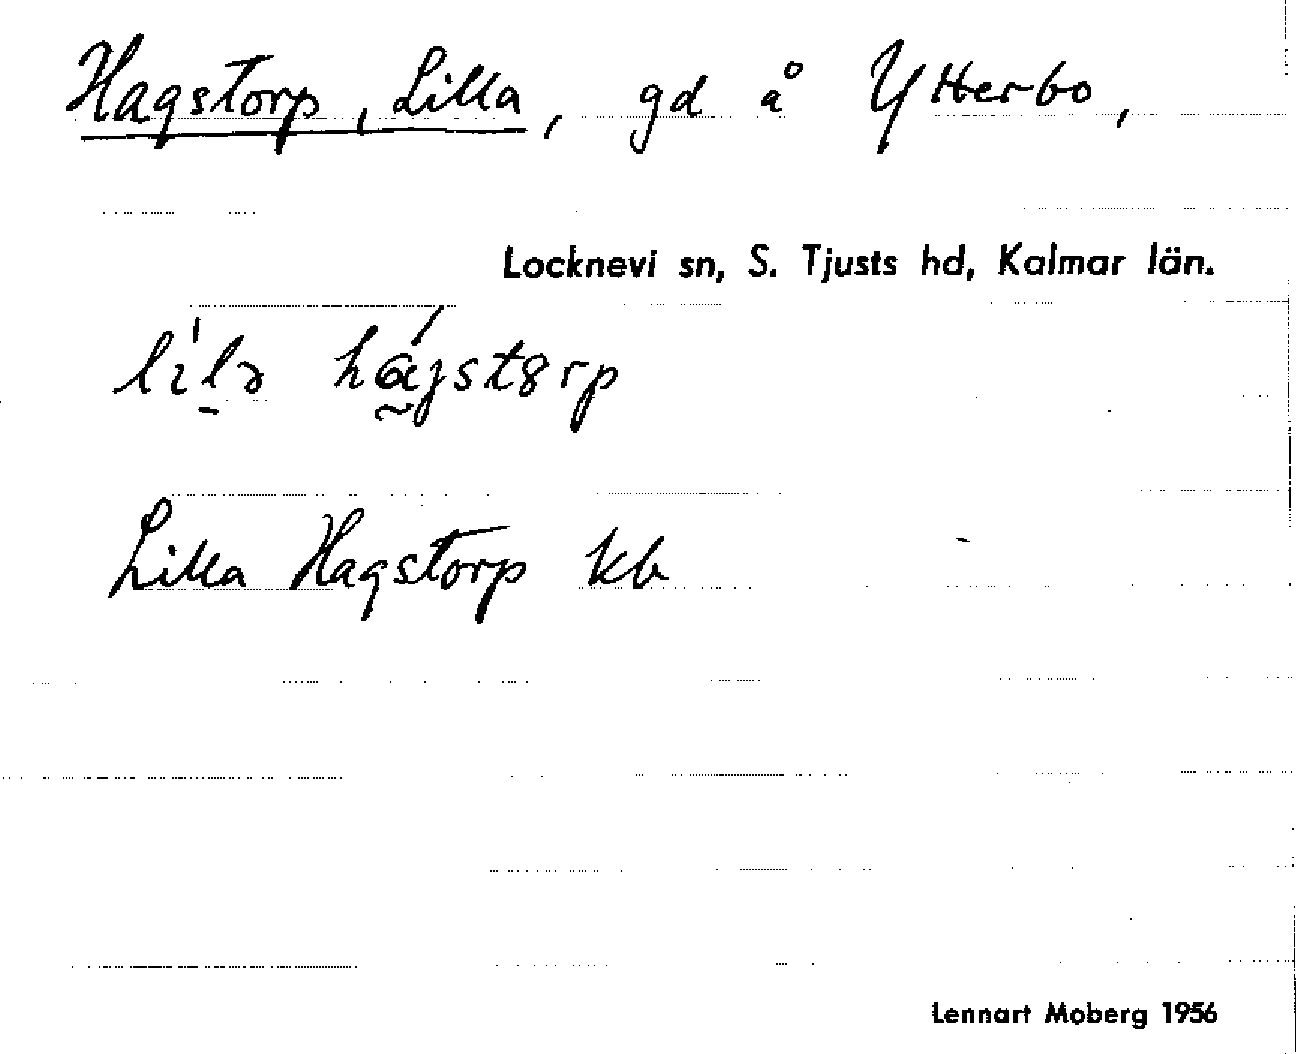 Hagstorp, Lilla, gd å Ytterbo,
Locknevi sn, S. Tjusts hd, Kalmar län.
Lilla Hagstorp kb
Lennart Moberg 1956